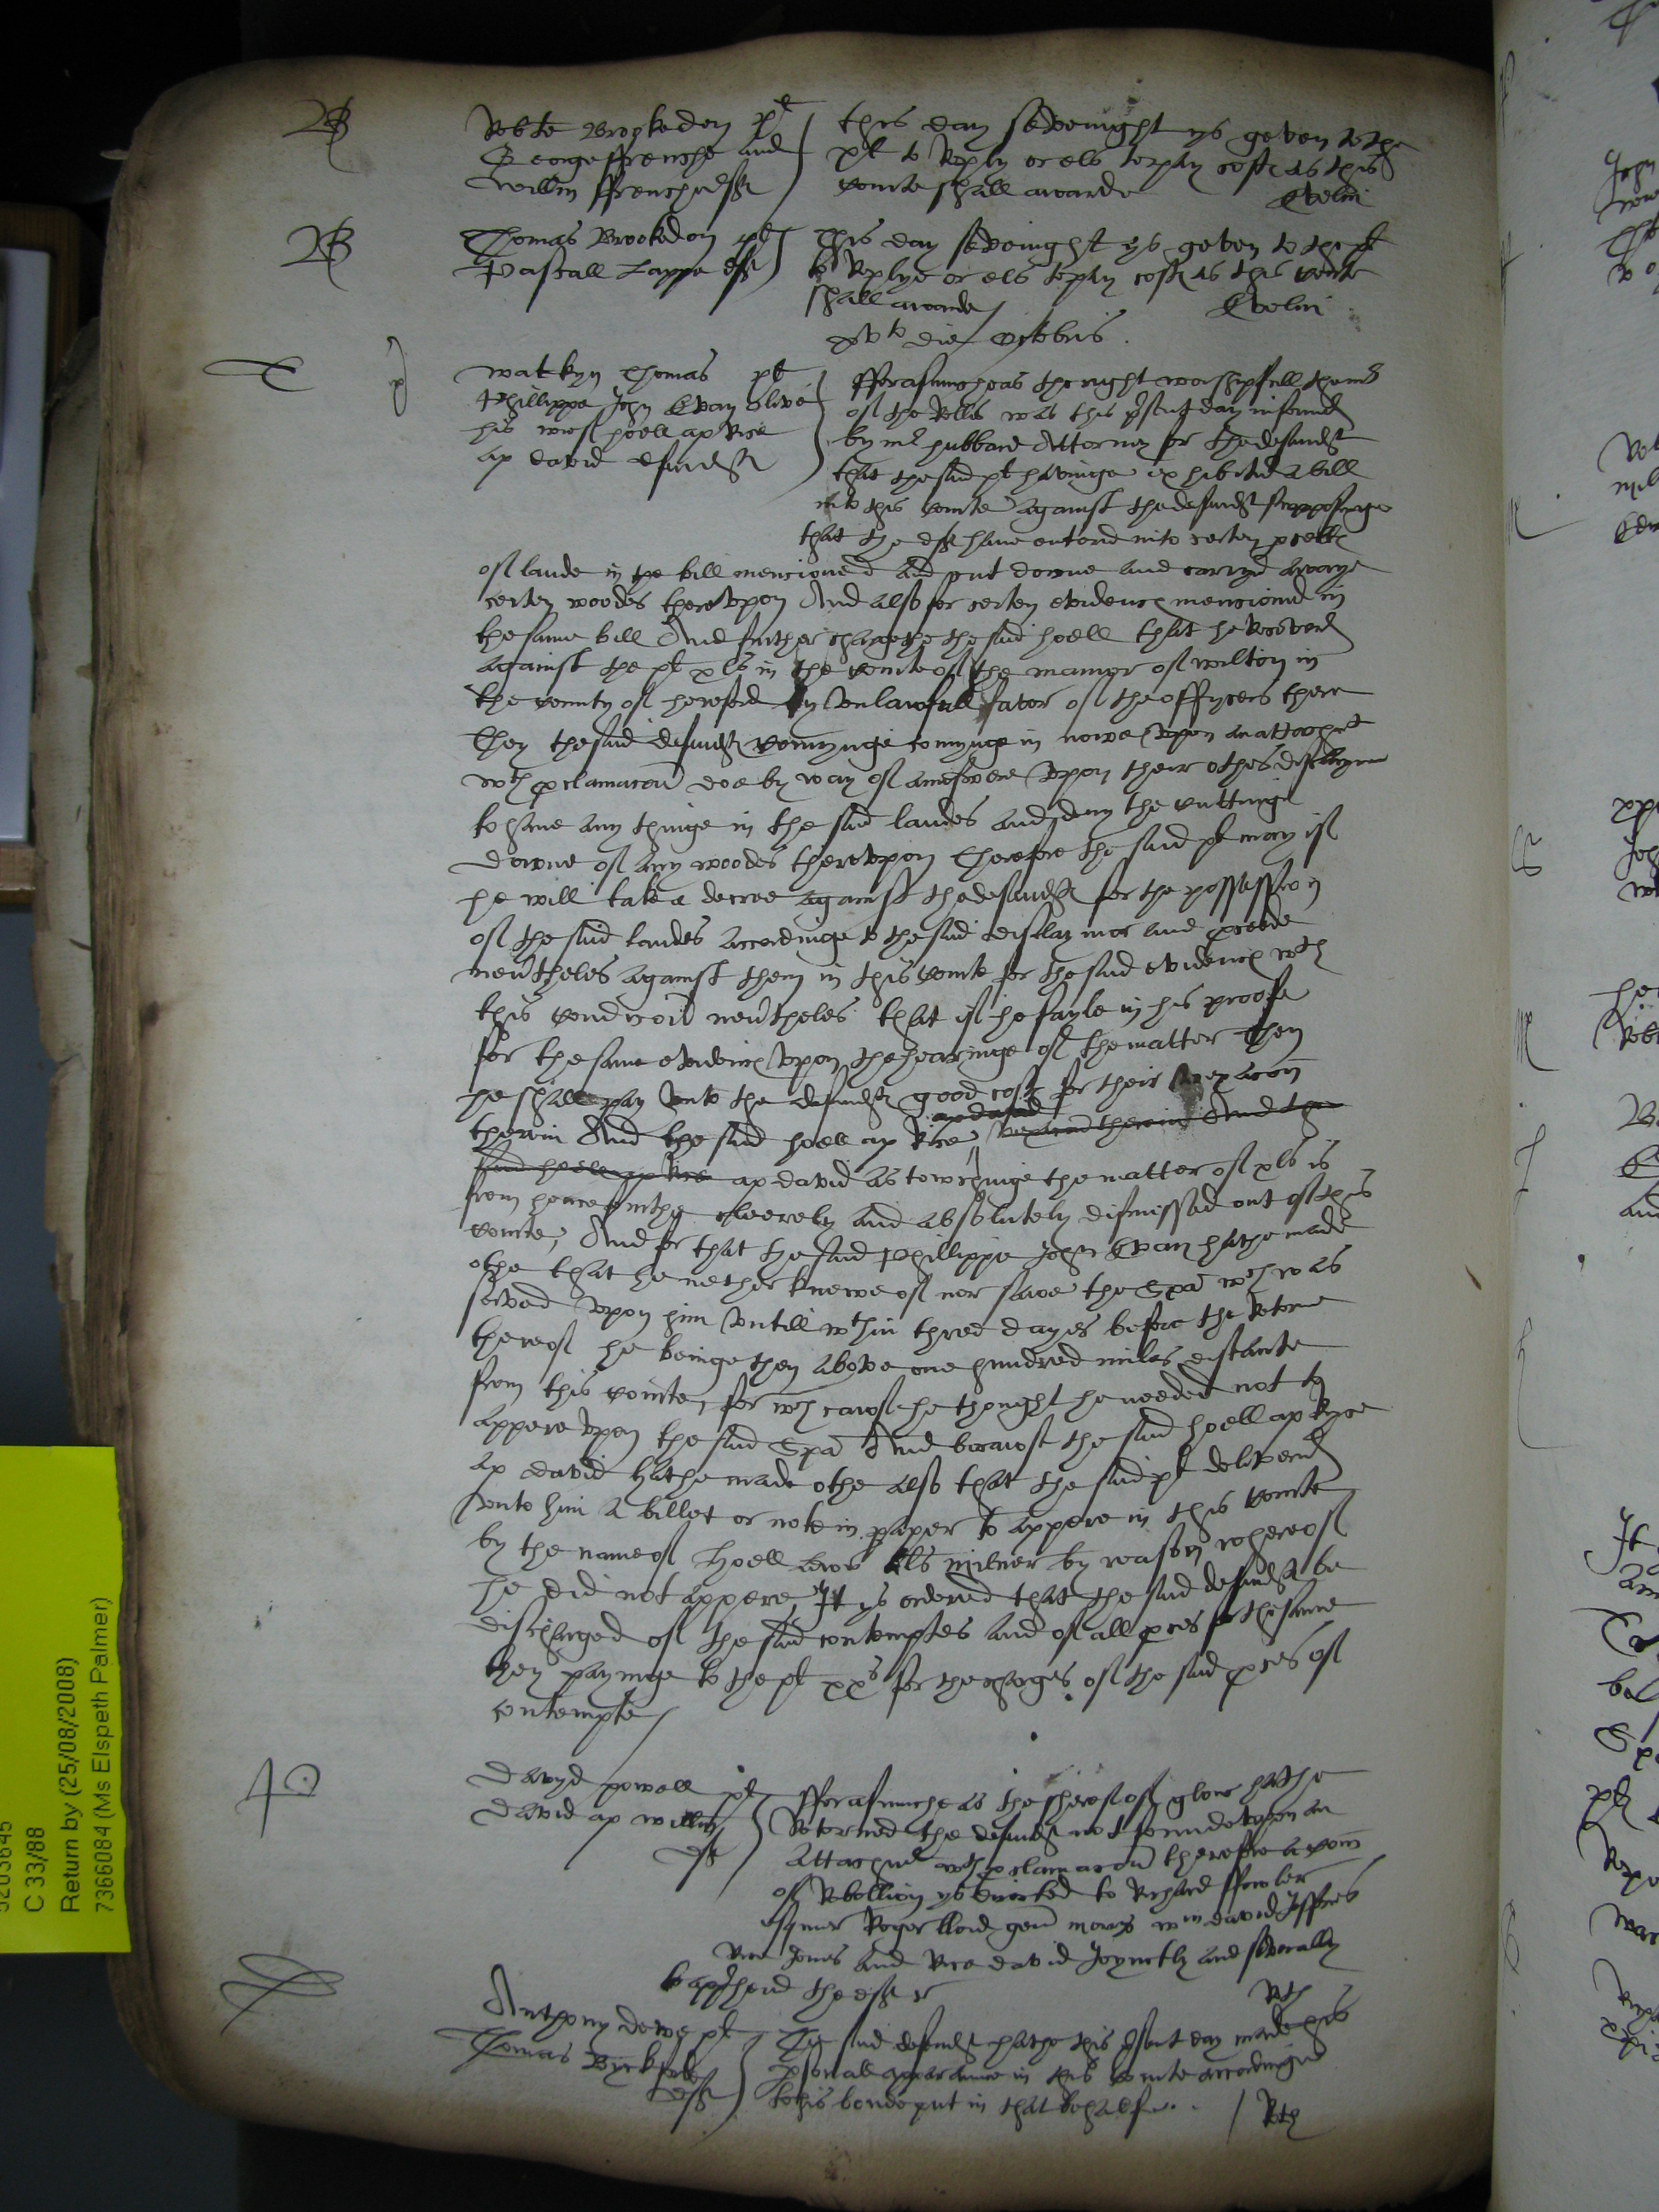 B
Robte Brokedon plt
George Frenche and
Willm ffrenche deftes
this day sevenight ys geven to the
plt to Reply or els to pay costes as this
Courte shall awarde
Evelin
B
Thomas Brokedon plt
Pascall Lappe deft
This day sevenight ys geven to the plt
to Replye or els to pay costes as this Courte
shall awarde
Evelin
die Octobris
T
Watkyn Thomas plt
Phillippe John Evan
his wief hoell ap Rice
ap david defendtes
fforasmuche as the right worshipfull the mr
of the Rolles was this psent day informed
by mr hubbard Attorney for the defendtes
that the said plt havinge exhibited a bill
into this Courte against the defendtes supposinge
that the deftes have entred into certen pcelles
of lande in the bill mencioned and put downe and carryed awaye
certen woodes thereupon And also for certen evidences mencioned in
the same bill And further chargethe the said hoell that he Recovered
against the plt xls in the Courte of the mannor of wilton in
the County of hereford by unlawfull favor of the offycers there
They the said defendtes comynge in nowe upon an attachmt
wth pclamacon doe by way of answere upon their othes disclayme
to have any thinge in the said landes and deny the cuttinge
downe of any woodes thereupon Therefore the said plt may if
he will take a decree against the defendtes for the possession
of the said landes accordinge to the said disclaymor and procede
nevtheles against them in this Courte for the said evidences wth
this condicon nevtheles that if he fayle in his proofe
for the same evidences upon the hearinge of the matter Then
he shall pay unto the defendtes good costes for their vexacon
therein And the said hoell ap Rice vexacon therein And the
said hoell ap Rice ap david as towchinge the matter of xls is
from hencefurthe cleerely and absolutely dismissed out of this
Courte, And for that the said Phillippe John Evan hathe made
othe that he nether knewe of nor sawe the Spa wch was
served upon him untill wthin three dayes before the Retorne
thereof he beinge then above one hundred miles distante
from this Courte, for wch cawse he thought he needed not to
appere upon the said Spa And becawse the said hoell ap Ryce
ap david hathe made othe also that the said plt delivered
unto him a billet or note in paper to appere in this Courte
by the name of Hoell als milner by reason whereof
he did not appere, It ys ordered that the said defendtes be
discharged of the said contemptes and of all pces for the same
they payinge to the plt xxs for the charges of the said pces of
contempte
P
Davyd powell plt
David ap Willm
deft
fforasmuche as the sherief of glouc hathe
Retorned the defendt not founde upon an
Attachmt wth pclamacon therefore a Com
of Rebellion ys directed to Richard ffowler
esquier Roger lloid gen moris wm david Jeffres
Rice Jones and Rice david Joynctly and severally
to apprhend the deft
Rth
Anthony dewe plt
Thomas
deft
The said defendt hathe this psent day made his
psonall apparance in this Courte accordinge
to his bonde put in that behalfe
Rth
C 33/88
Return by (25/08/2008)
7366084 (Ms Elspeth Palmer)